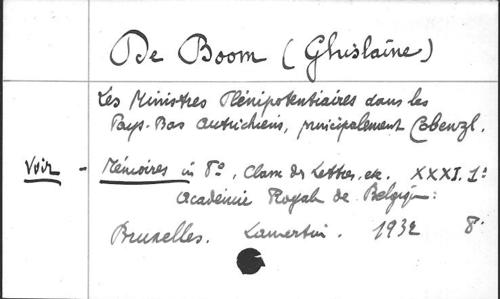 De Boom (Ghislaine)
Les Ministres Plénipotentiaires dans les
Pays-Bas autrichiens, principalement Cobenzl.
Voir - Mémoires in 8º, Classe des Lettres, etc. XXXI. 1º
Académie Royale de Belgique:
Bruxelles. Lamertin. 1932 8º